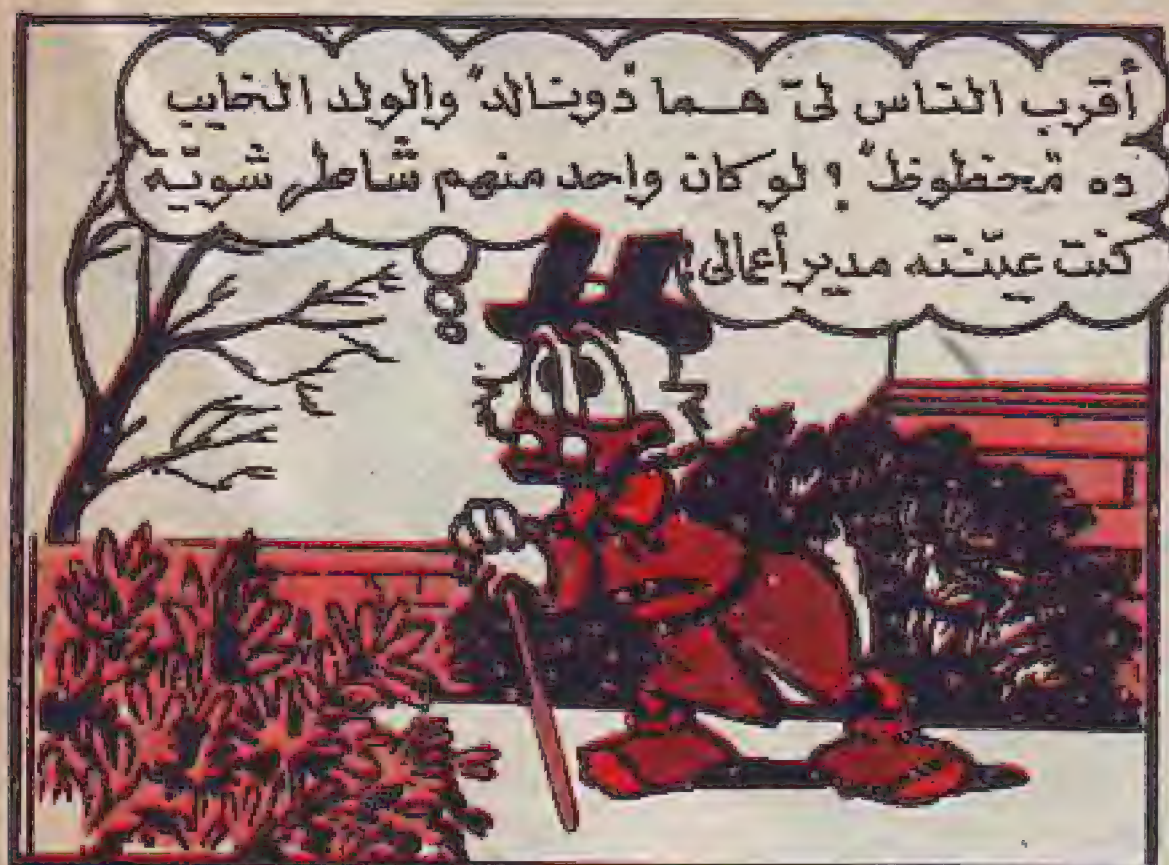 أقرب الناس لىّ هما "دونالد" والولد الخايب
ده "محظوظ" ؟ لو كان واحد منهم شاطر شويّة
كنت عيّنته مدير أعمالى!